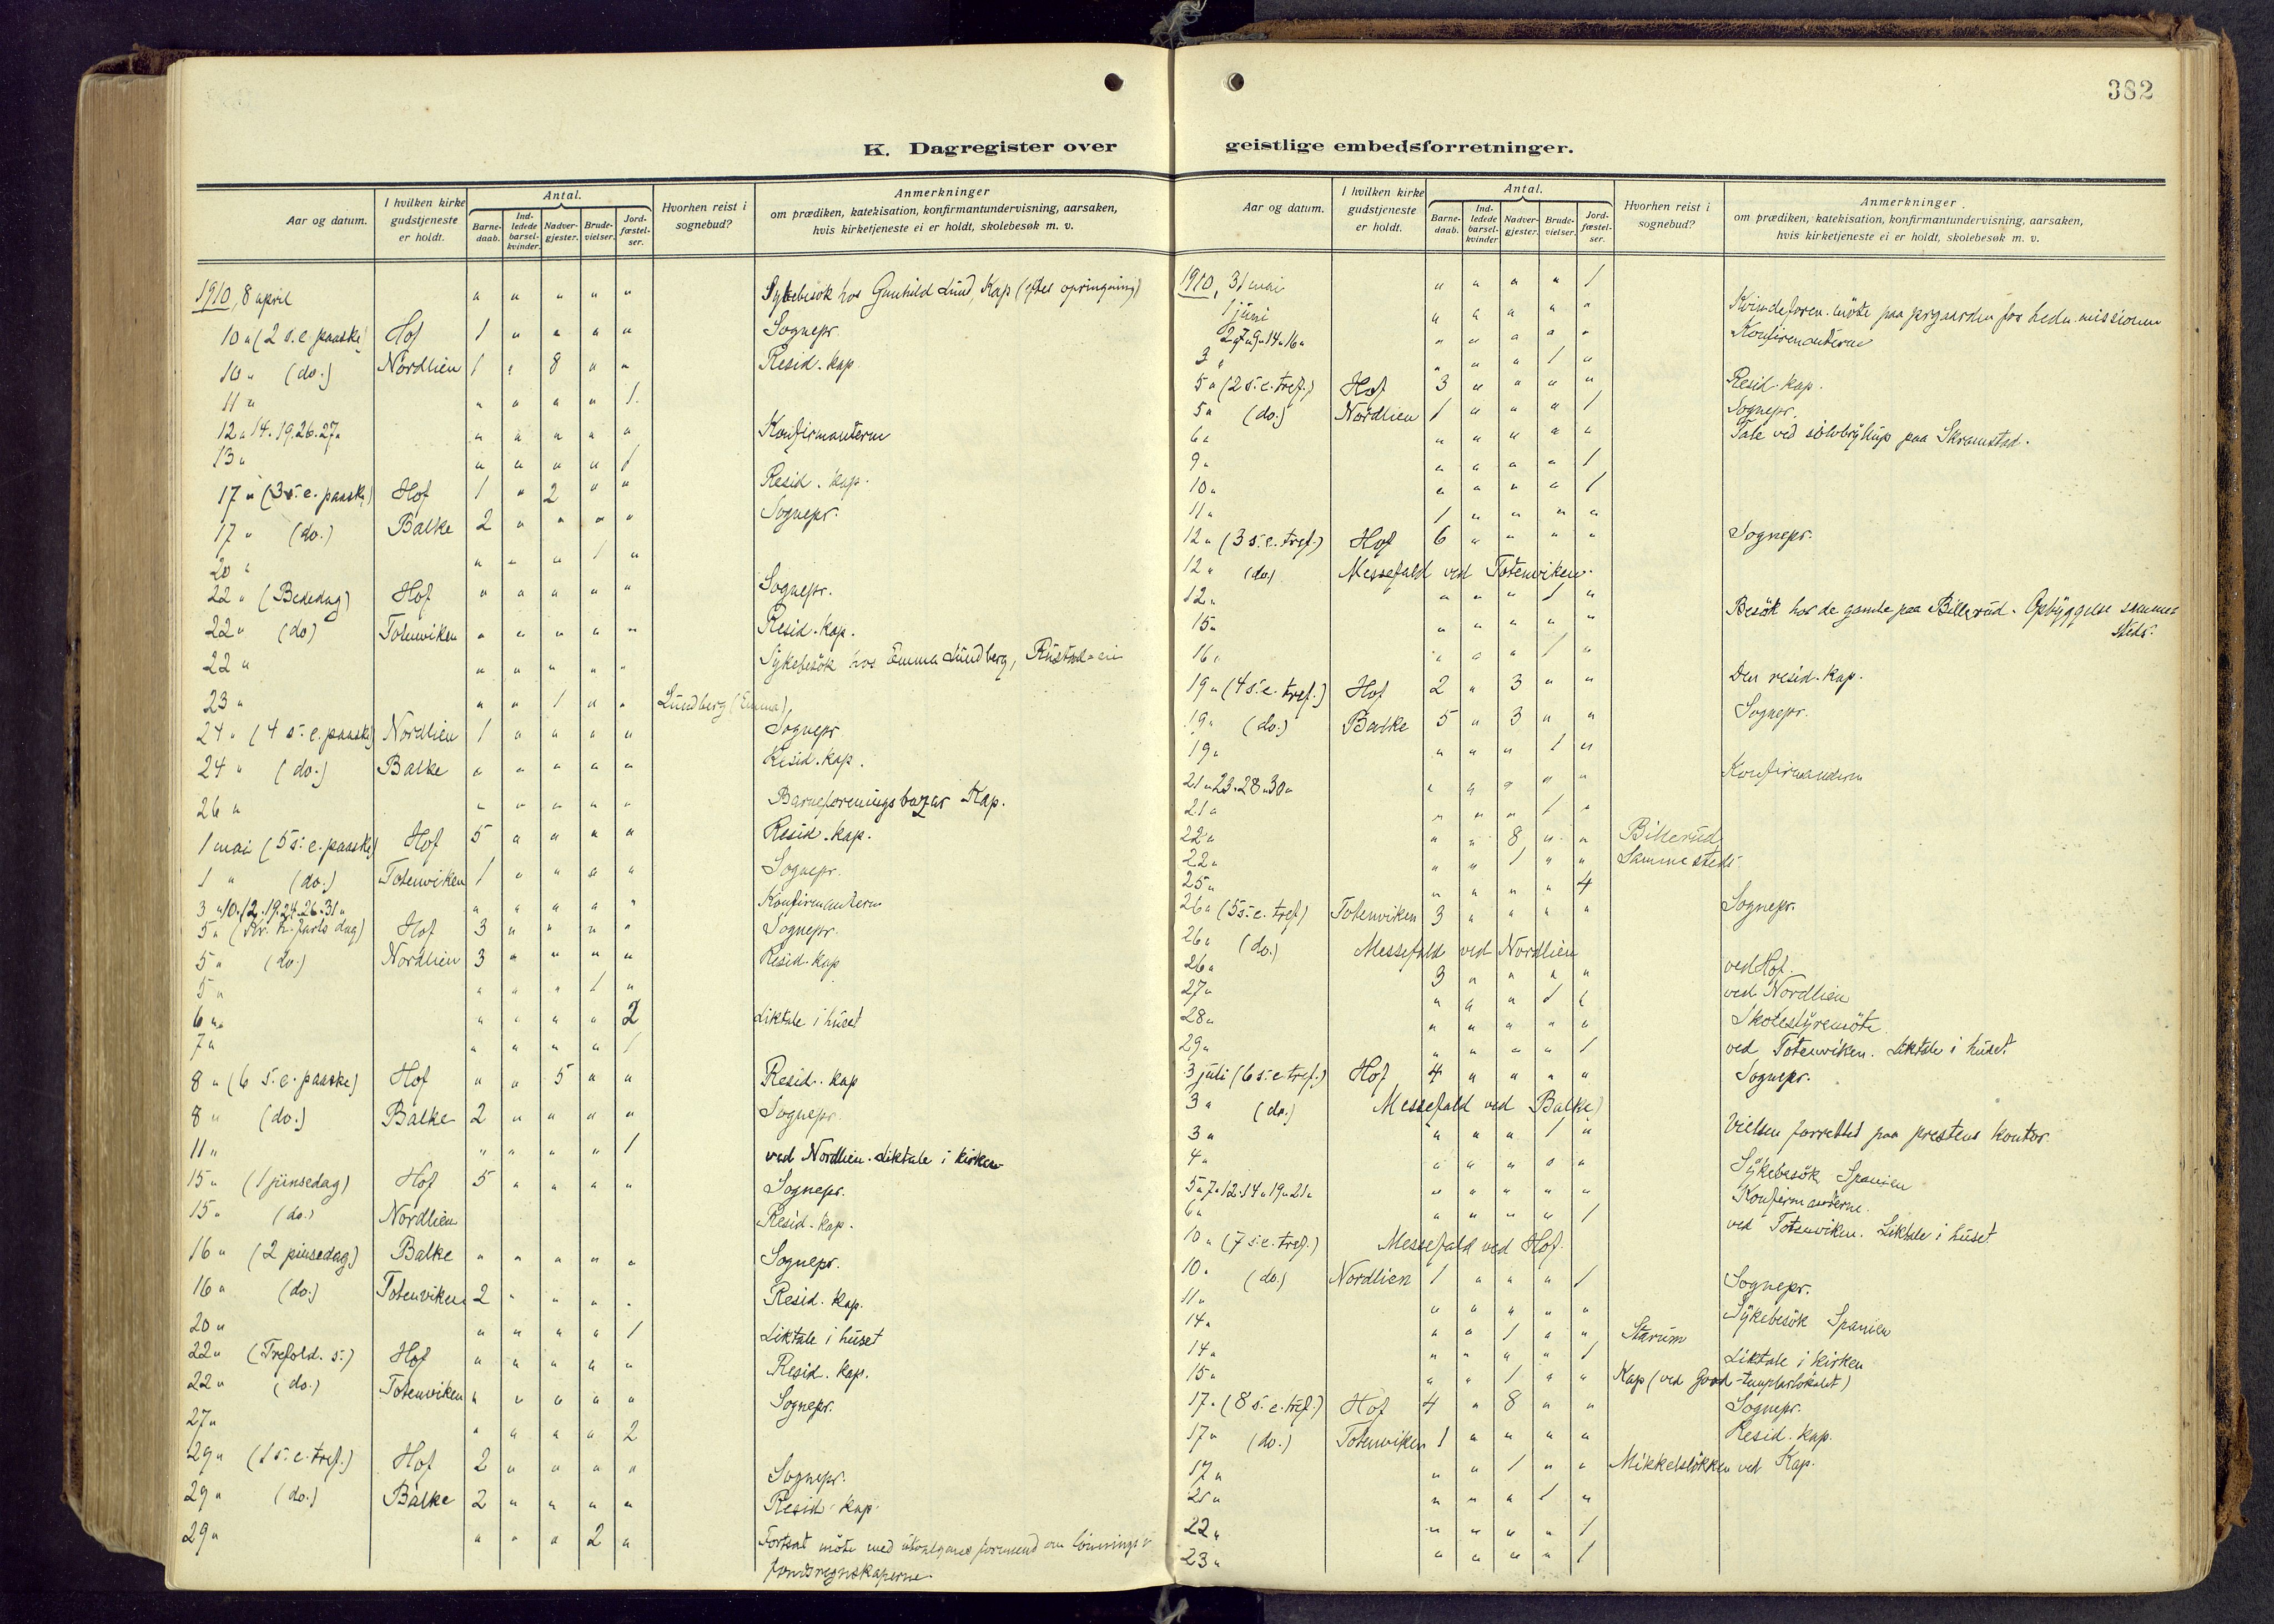 382
K. Dagregister over geistlige embedsforretninger.
Aar og datum. I hvilken kirke gudstjeneste er holdt. Antal. Barne-daab. Ind-ledede barsel-kvinder. Nadver-gjester. Brude-vielser. Jord-fæstel-ser. Hvorhen reist i sognebud? Anmerkninger om prædiken, katekisation, konfirmantundervisning, aarsaken, hvis kirketjeneste ei er holdt, skolebesøk m. v.
1910, 8 april " " " " " Sykebesök hos Gunhild Lund, Kap
10 " (2 s. e. paaske) Hof 1 " " " " Sognepr.
10 " (do.) Nordlien 1 " 8 " " Resid. kap.
11 " " " " " 1
12 " 14. 19. 26. 27 " " " " " " Konfirmanterne
13 " " " " " 1
17 " (3 s. e. paaske) Hof 1 " 2 " " Resid. kap.
17 " (do.) Balke 2 " " " " Sognepr.
20 " " " " 1 "
22 " (Bededag) Hof " " " " " Sognepr.
22 " (do) Totenviken " " " " " Resid. kap.
22 " " " " " " Sykebesök hos Emma Lundberg, Rustad-eie
23 " " " 1 " " Lundberg (Emma),
24 " (4 s. e. paaske) Nordlien 1 " " " " Sognepr.
24 " (do.) Balke " " " " " Resid. kap.
26 " " " " " " Barneforeningsbazar Kap.
1 mai (5 s. e. paaske) Hof 5 " " " " Resid. kap.
1 " (do.) Totenviken 1 " " " " Sognepr.
3 " 10. 12. 19. 24. 26. 31 " " " " " " Konfirmanterne
5 " (Kr. h. farts dag) Hof 3 " " " " Sognepr.
5 " (do.) Nordlien 3 " " " " Resid. kap
5 " " " " 1 "
6 " " " " " 2 Liktale i huset
7 " " " " " 1
8 " (6 s. e. paaske) Hof " " 5 " " Resid. kap
8 " (do.) Balke 2 " " " " Sognepr.
11 " " " " " 1 ved Nordlien. Liktale i kirken
15 " (1 pinsedag) Hof 5 " " " " Sognepr.
15 " (do.) Nordlien Resid. kap.
16 " (2 pinsedag) Balke " " " " " Sognepr.
16 " (do.) Totenviken 2 " " " " Resid. kap.
20 " " " " " 1 Liktale i huset
22 " (Trefold. s.) Hof " " " " " Resid. kap.
22 " (do.) Totenviken " " " " " Sognepr.
27 " " " " " 2
29 " (1 s. e. tref.) Hof 2 " " " " Sognepr.
29 " (do.) Balke 2 " " " " Resid. kap
29 " " " " 2 " Fortsat möte med
fondsregnskaperne.
Aar og datum. I hvilken kirke gudstjeneste er holdt. Antal. Barne-daab. Ind-ledede barsel-kvinder Nadver-gjester. Brude-vielser. Jord-fæstel-ser. Hvorhen reist i sognebud? Anmerkninger om prædiken, katekisation, konfirmantundervisning, aarsaken, hvis kirketjeneste ei er holdt, skolebesøk m. v.
1910, 31 mai " " " " 1
1 juni " " " " " Kvindeforen. möte paa prgaarden for hedn. missionen
2 " 7 " 9 " 14 " 16 " " " " " " Konfirmanterne
3 " " " " 1 "
5 " (2 s. e. tref.) Hof 3 " " " " Resid. kap.
5 " (do.) Nordlien 1 " " " 1 Sognepr.
6 " " " " " " Tale ved sölvbryllup paa Skramstad.
9 " " " " " 1
10 " " " " " 1
11 " 1 " " " "
12 " (3 s. e. tref.) Hof 6 " " " " Sognepr.
12 " (do) Messefald ved Totenviken.
12 " " " " 1 "
15 " " " " " " Besök hos de gamle paa Billerud. Opbyggelse sammes
steds.
16 " " " " 1 "
19 " (4 s. e. tref.) Hof 2 " 3 " " Den resid. kap.
19 " (do.) Balke 5 " 3 " " Sognepr.
19 " " " " 1 "
21 " 23. 28 " 30 " " " " " " Konfirmanterne
21 " " " " 1 "
22 " " " 8 " " Billerud
22 " " " 1 " " Sammesteds
25 " " " " " 4
26 " (5 s. e. tref) Totenviken 3 " " " " Sognepr.
26 " (do.) Messefald ved Nordlien
26 " 3 " " " " ved Hof.
27 " " " " 1 " ved Nordlien
28 " " " " " " Skolestyremöte.
29 " " " " " 1 ved Totenviken. Liktale i huset.
3 juli (6 s. e. tref.) Hof 4 " " " " Sognepr.
3 " (do.) Messefald ved Balke)
3 " " " " 1 " Vielsen forrettet paa prestens kontor.
4 " " " " " " Sykebesök Spanien
5 " 7 " 12. 14 " 19 " 21 " " " " " " Konfirmanterne.
6 " " " " " 1 ved Totenviken. Liktale i huset
10 " (7 s. e. tref.) Messefald ved Hof.
10 " (do.) Nordlien 1 " " " 1 Sognepr.
11 " " " " " " Sykebesök Spanien
14 " " " 1 " " Starum
14 " " " " " 1 Liktale i kirken
15 " " " 1 " " Kap (ved Good-templarlokalet)
17 " (8 s. e. tref.) Hof 4 " 8 " " Sognepr.
17 " (do.) Totenviken 1 " " " " Resid. kap.
17 " " " 1 " " Mikkelslökken ved Kap.
21 " " " " 1 "
22 " " " " " 1
23 " " " " " 1